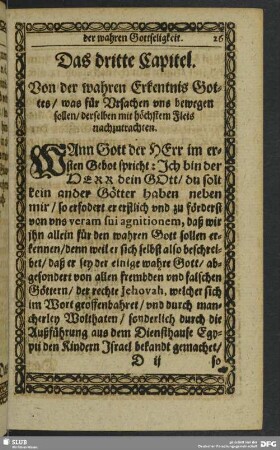 der wahren Gottseligkeit. 26
Das dritte Capitel.
Von der wahren Erkentnis Got-
tes / was für Vrsachen vns bewegen
sollen / derselben mit höchstem Fleis
nachzutrachten.
WAnn Gott der HErr im er-
sten Gebot spricht: Jch bin der
HERR dein GOtt / du solt
kein ander Götter haben neben
mir / so erfodert er erstlich vnd zu förderst
von vns veram sui agnitionem, daß wir
ihn allein für den wahren Gott sollen er-
kennen / denn weil er sich selbst also beschrei-
bet / daß er sey der einige wahre Gott / ab-
gesondert von allen frembden vnd falschen
Göttern / der rechte Jehovah, welcher sich
im Wort geoffenbahret / vnd durch man-
cherley Wolthaten / sonderlich durch die
Außführung aus dem Diensthause Egy-
pti den Kindern Israel bekandt gemachet /
D ij so
SLUB
DFG